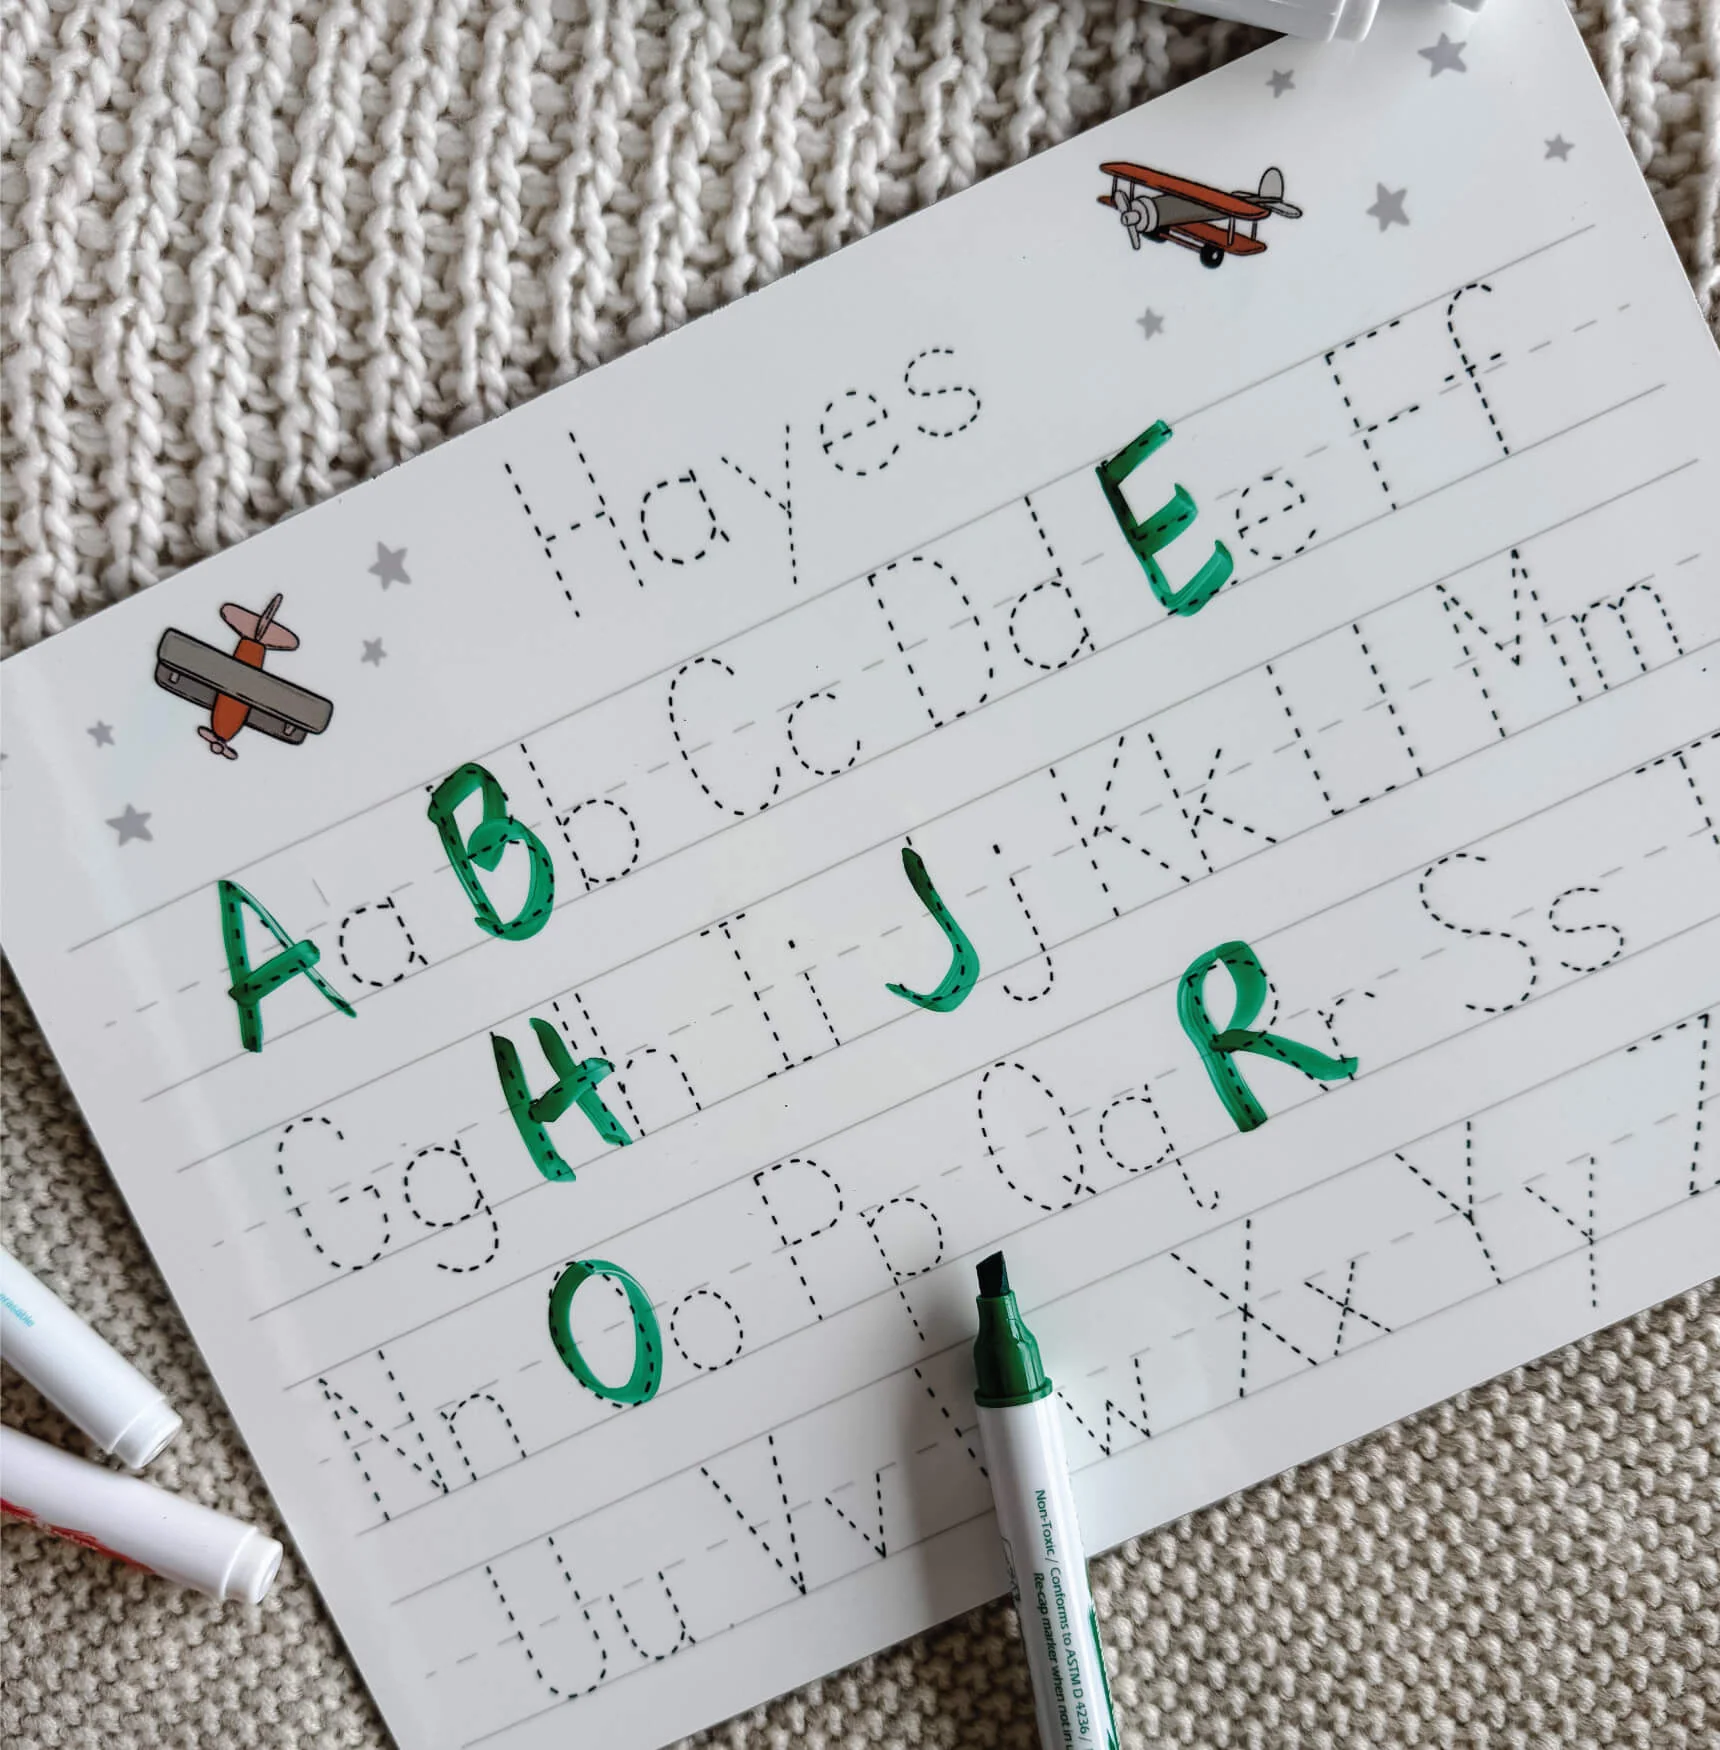 Hayes
Aa Bb Cc Dd Ee Ff
Gg Hh Ii Jj Kk Ll Mm
Nn Oo Pp Qq Rr Ss T
Uu Vv w Xx Yy
Non-Toxic / Conforms to ASTM D 4236 /
Re-cap marker when not in